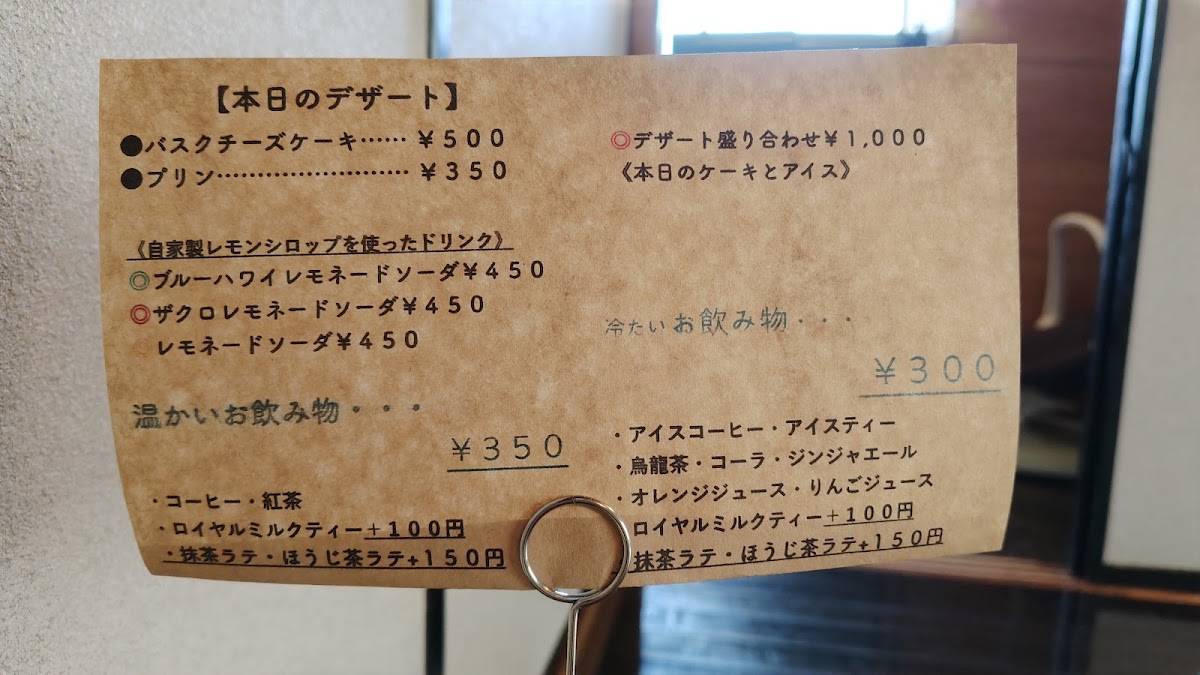 【本日のデザート】
●バスクチーズケーキ…… ¥500
●プリン…………………… ¥350
◎デザート盛り合わせ¥1,000
《本日のケーキとアイス》
《自家製レモンシロップを使ったドリンク》
◎ブルーハワイレモネードソーダ¥450
◎ザクロレモネードソーダ¥450
レモネードソーダ¥450
温かいお飲み物・・・
¥350
・コーヒー・紅茶
・ロイヤルミルクティー+100円
・抹茶ラテ・ほうじ茶ラテ+150円
冷たいお飲み物・・・
¥300
・アイスコーヒー・アイスティー
・烏龍茶・コーラ・ジンジャエール
・オレンジジュース・りんごジュース
ロイヤルミルクティー+100円
抹茶ラテ・ほうじ茶ラテ+150円